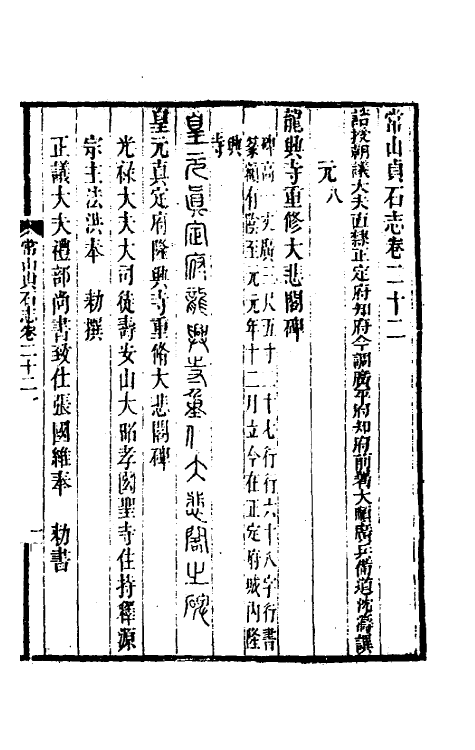 常山貞石志卷二十二
誥授朝議大夫直隸正定府知府今調廣平府知府前署大順廣兵備道沈濤譔
元八
龍興寺重修大悲閣碑
碑高一丈廣三尺五寸二十七行行六十八字行書
篆額有陰至元元年十二月立今在正定府城內隆
興寺
皇元真定府龍興寺重修大悲閣之碑
皇元真定府隆興寺重脩大悲閣碑
光祿大夫大司徒壽安山大昭孝寺住持釋源
宗主法洪奉　勅撰
正議大夫禮部尚書致仕張國維奉　勅書
常山貞石志卷二十二
一